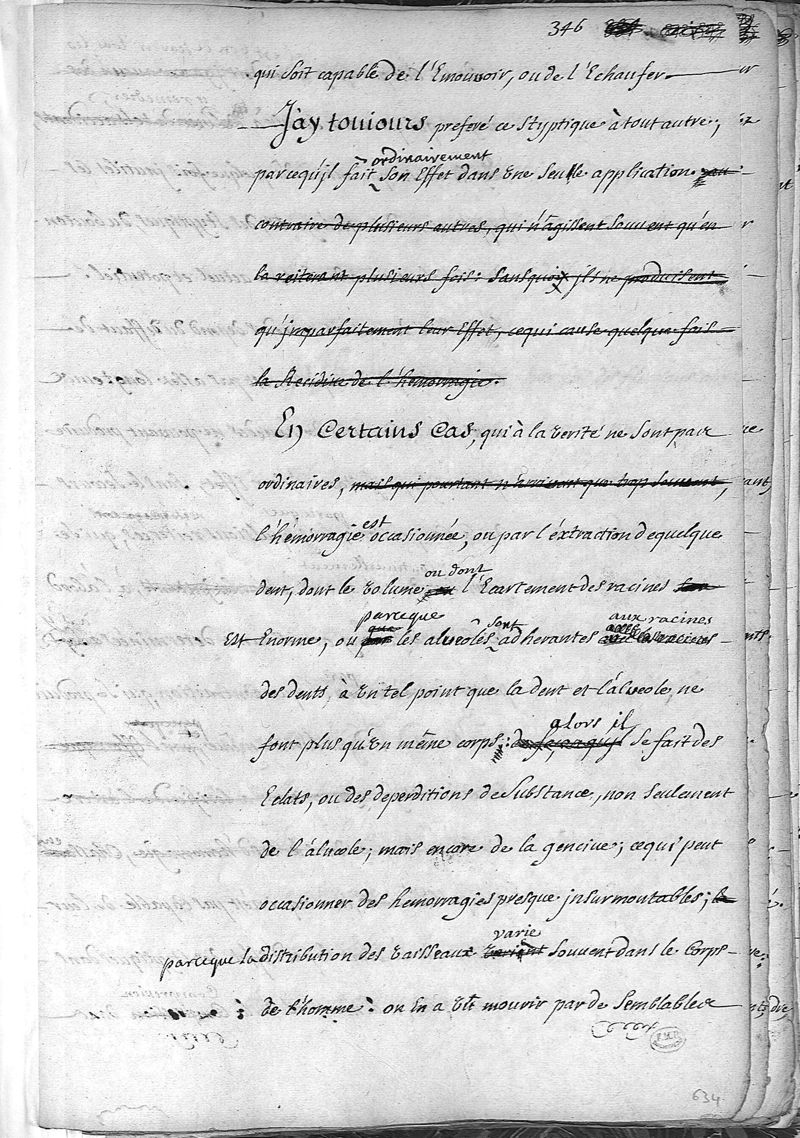 346
qui soit capable de l'Emouvoir, ou de l'Echaufer
J'ay touiours preferé ce styptique à tout autre,
ordinairement
parcequ'jl fait son Effet dans vne seulle application. au
contraire de plusieurs autres, qui n'agissent souvent qu'en
la reiterant plusieurs fois: sansquoi jls ne produisent
qu'jmparfaitement leur Effet, cequi cause quelque fois
la Recidive de l'hémorragie.
En certains cas, qui à la verité ne sont pas
ordinaires, mais qui pourtant n'arrivent que trop souvent,
est
l'hémorragie occasionnée, ou par l'éxtraction de quelque
ou dont
dent, dont le volume ou l'Ecartement des racines
parceque sont aux racines
Est Enorme, ou par les alveolés adherantes
des dents, à vn tel point que la dent et l'alveole, ne
alors il
font plus qu'vn même corps: de façonqu'jl se fait des
Eclats, ou des deperditions de substance, non seulement
de l'álveole; mais encore de la gencive; cequi peut
occasionner des hemorragies presque jnsurmontables; la
varie
parceque la distribution des vaisseaux varient souvent dans le corps
de l'homme: on en a vû mourir par de semblables
634